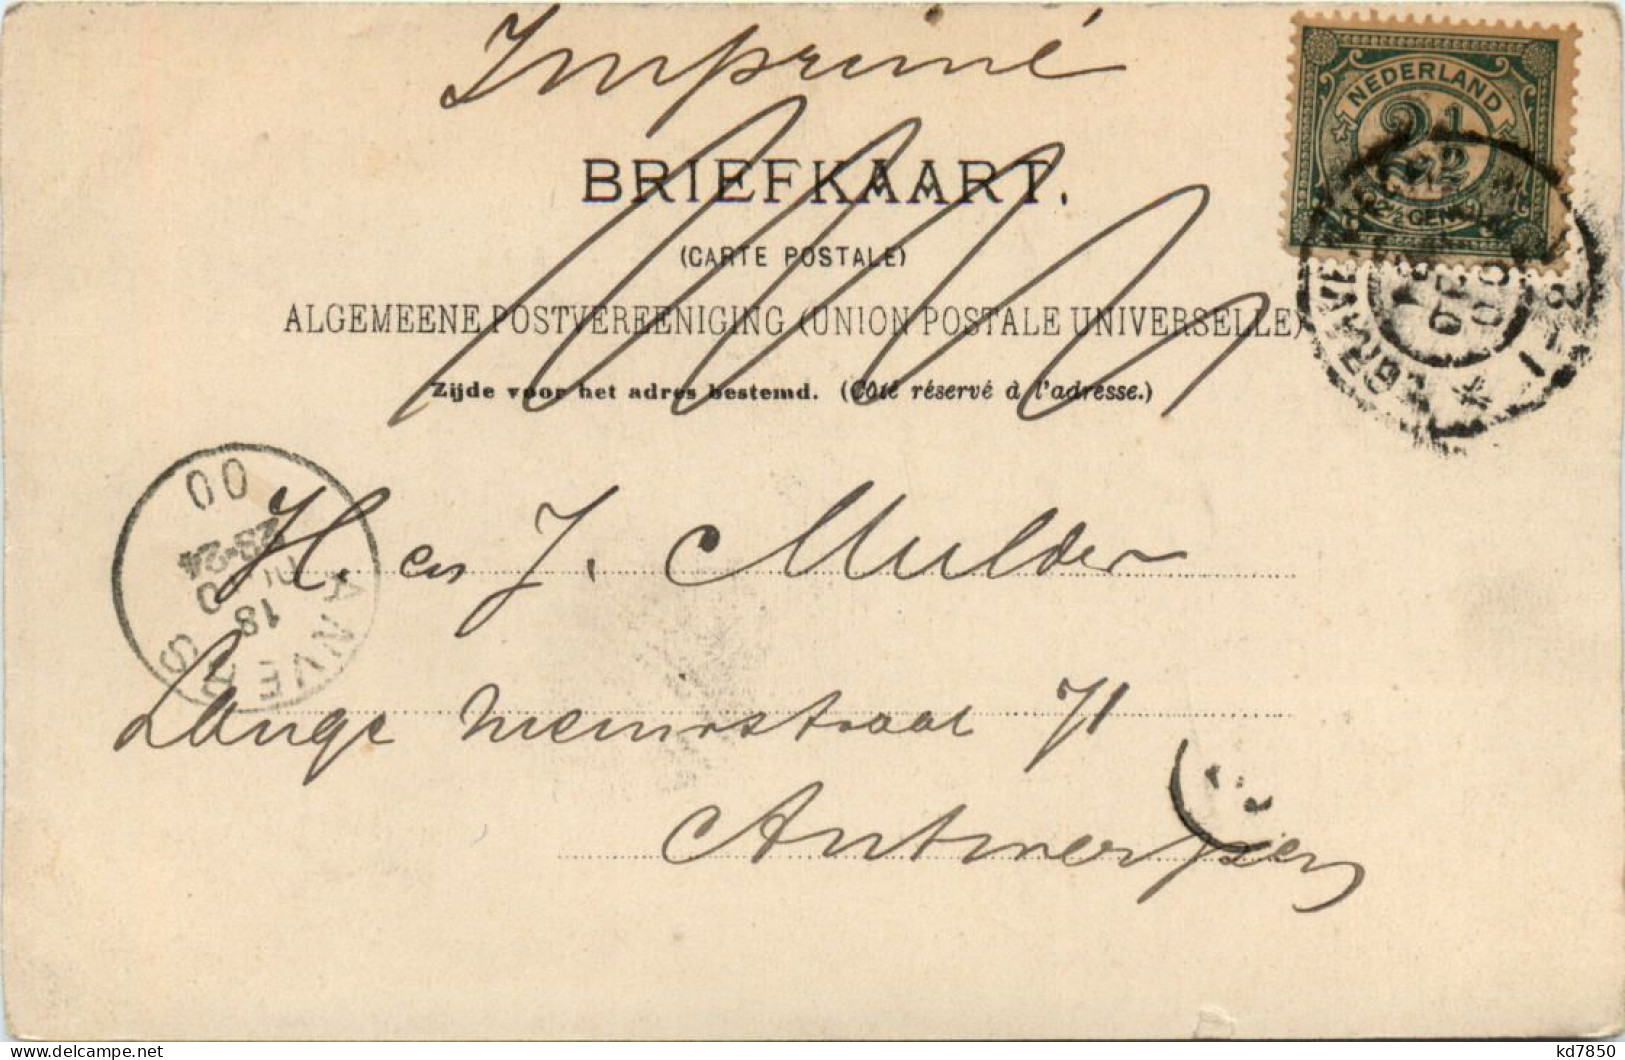 Imprimé
BRIEFKAART.
(CARTE POSTALE)
ALGEMEENE POSTVEREENIGING (UNION POSTALE UNIVERSELLE)
Zijde voor het adres bestemd. (Côté réservé à l'adresse.)
NEDERLAND
2 1/2
2½ CENT
00
23-24
18
ANVERS
H. en J. Mulder
Lange 71
Antwerpen
kd7850